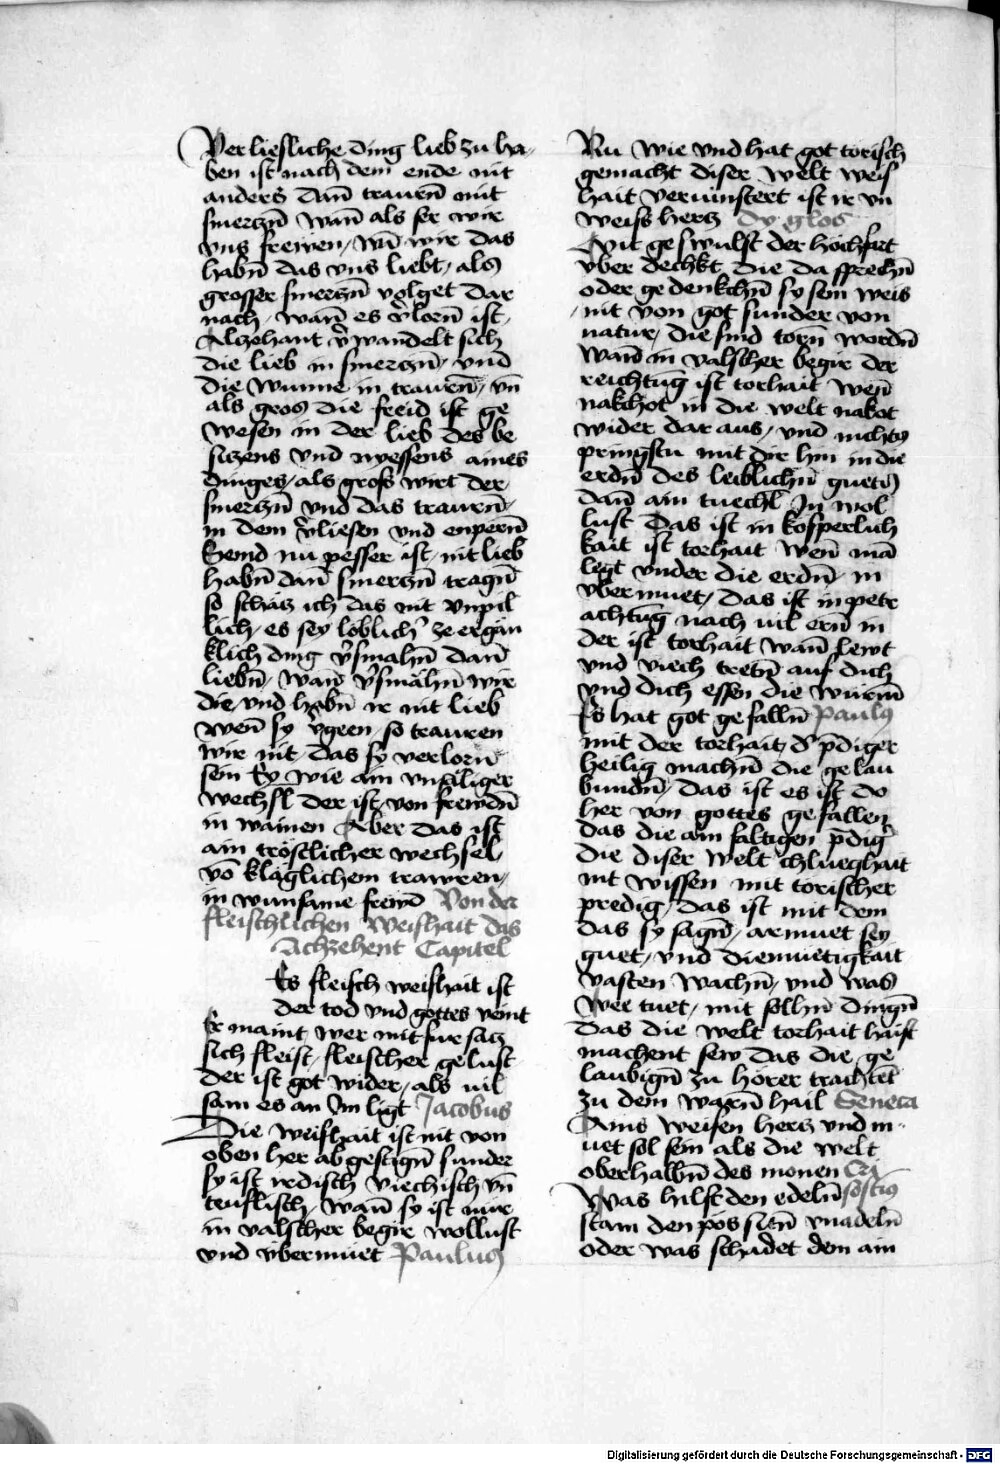 Verliesliche ding lieb zu ha-
ben ist nach dem ende nit
anders dan̄ trauren mit
smerczn̄ wan̄ als ser wir
vns frewen / wn̄ wir das
habn̄ das vns liebt / als
grosser smerczn̄ volget dar
nach / wan̄ es v̉lorn̄ ist /
Alzehant v̉wandelt sich
die lieb in smerczn̄ / vnd
die wunne in trauren̄ / vn̄
als gros die freid ist ge
wesen in der lieb des be
siczens vnd nyessens aines
dinges / als groß wirt der
smerczn̄ vnd das trauren̄
in dem v̉liesen vnd enpern̄
Seind nu pesser ist / nit lieb
habn̄ dan̄ smerczn̄ tragn̄
so schäcz ich das nit vnpil
lich / es sey löblich̉ ze ergän
klich ding v̉smahn̄ dan̄
liebn̄ / wan̄ v̉smähn̄ wir
die / vnd habn̄ ir nit lieb
wen̄ sy v̉geen / so trauren
wir nit / das sy verlorn̄
sein Ey wie ain vnsäliger
wechsl der ist / von frewdn̄
in wainen Aber das ist
ain tröstlicher wechsel
vō kläglichem trawren /
in wunsame frewd Von der
fleischlichen Weishait das
Achzehent Capitel
Es fleisch weishait ist
der tod vnd gottes veint
Er maint wer mit fursacz
sich fleist / fleischer gelust
der ist got wider / als vil
sam es an Im ligt Jacobus
Die weishait ist nit von
oben her ab gestign̄ sunder
sy ist irdisch viechisch vn̄
teuflisch / wan̄ sy ist nur
in valscher begir wollust
vnd vbermuet Paulus
Nu wie vnd hat got torisch
gemacht diser welt weis
hait verunnstert ist ir vn
weiss hercz Dy glos
Mit geswulst der hochfart
vber deckt die da sprechn̄
oder gedenkchn̄ sy sein weis
/ nit von got sunder von
natur / die sind torn̄ wordn̄
wan̄ in valscher begir der
reichtūg ist torhait wen̄
nakchot in die welt nakot
wider dar aus / vnd nichts
pringstu mit dir hin in die
erdn̄ des leiblichn̄ guets
dan̄ ain tuechl In wol
lust das ist in kosperlich
kait ist torhait wen̄ mā
legt vnder die erdn̄ in
vbermuet / das ist in petr
achtūg nach vil ern̄ in
der ist torhait wan̄ lewt
vnd viech tretn̄ auf dich
vnd dich essen die würm̄
Es hat got gefalln̄ Paulus
mit der torhait d̉ p̄diger
heilig machn̄ die gelau
bundn̄ / das ist es ist do
her von gottes gefallen
das die ainfaltigen p̄dig̉
die diser welt chlueghait
nit wissen mit torischer
predig / das ist mit dem
das sy sagn̄ / armuet sey
guet / vnd diemuetigkait
vasten wachn̄ / vnd was
wee tuet / mit solhn̄ dingn̄
das die welt torhait haist
machent sew das die ge
laubign̄ zu hörer trachtēt
zu dem warn̄ hail Seneca
Ains weisen hercz vnd m-
uet sol sein als die welt
oberhalbn̄ des monen Cri
Was hilft den edeln̄ sostius
stam den pos sitn̄ vnadeln̄
oder was schadet dem ain
Digitalisierung gefördert durch die Deutsche Forschungsgemeinschaft - DFG